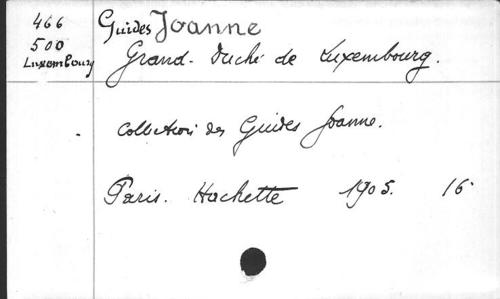 466
500
Luxembourg
Guides Joanne
Grand-Duché de Luxembourg.
Collection des Guides Joanne.
Paris. Hachette 1905. 16°